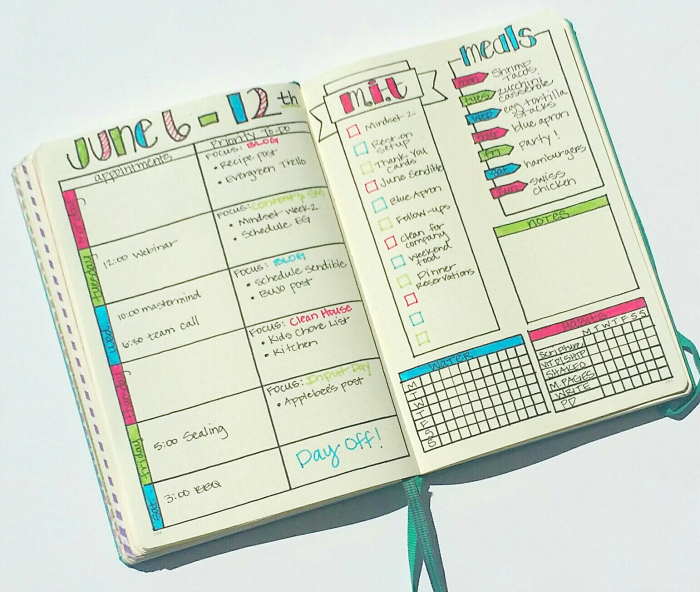 June 6 - 12th
appointments
Priority To-Do
monday
Focus: BLOG
• Recipe post
• Evergreen Trello
tuesday
12:00 Webinar
Focus: Content/SM
• Mindset week 2
• Schedule EG
wed
10:00 mastermind
6:30 team call
Focus: BLOG
• schedule sendible
• BUJO post
thursday
Focus: Clean House
• Kids Chore List
• Kitchen
friday
5:00 Sealing
Focus: Input Day
• Applebee's post
sat
3:00 BBQ
Day Off!
m.i.t
Mindset 2
Rest-on
setup
Thank You
Cards
June Sendible
Blue Apron
Follow-ups
Clean for
company
Weekend
food
Dinner
Reservations
meals
mon
Shrimp
Tacos
tues
zucchini
casserole
wed
egg tortilla
stacks
thur
blue apron
fri
party!
sat
hamburgers
sun
swiss
chicken
notes
water
M
T
W
T
F
S
S
Habits
M T W T F S S
Scripture
WORSHIP
SHAKEO
M. PAGES
WRITE
PD